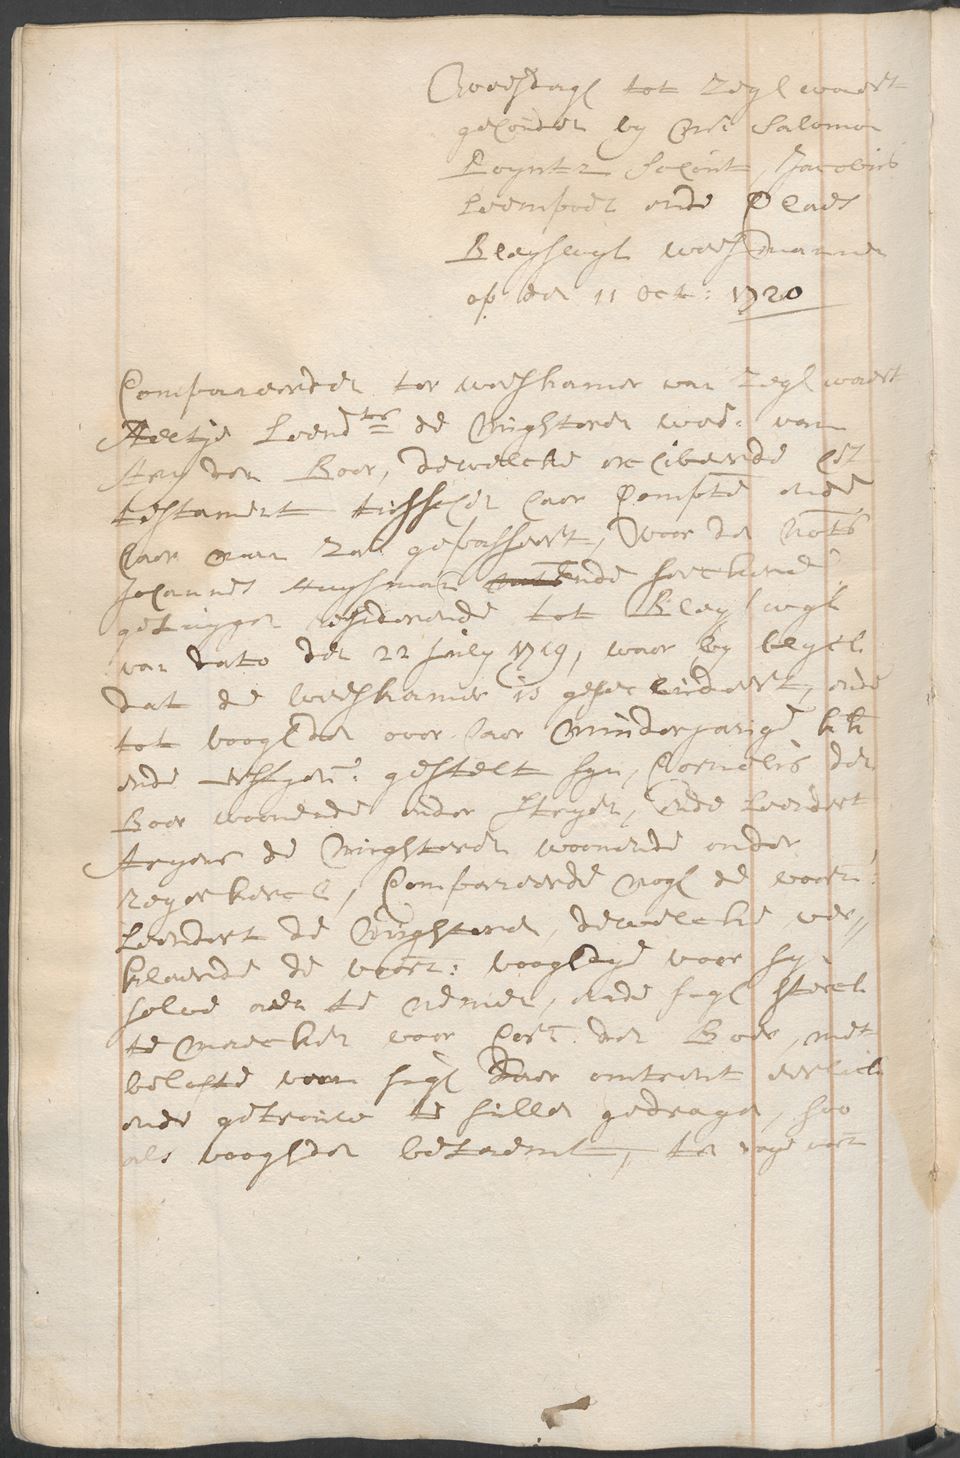 Weesdagh tot Zeghwaert
gehouden by Mr. Salomon
Poyntz Schout, Jacobus
Leempoel ende Claes
Bleyswyk weesmannen
op den 11 Oct: 1720
Compareerden ter weeskamer van Zeghwaert
Aeltje Leendts de Mughsteren wed: van
Ary den Boer, dewelcke exhibeerde het
testament tusschen haer Compte ende
haer man Za: gepasseert, voor den Nots
Johannes Huysman ende seeckere
getuygen resideerende tot Bleyswyk
van dato den 22 July 1719, waer by blyckt
dat de weeskamer is gesecludeert, ende
tot vooghden over haer minderjarige kk
ende gestelt syn, Cornelis den
Boer woonende onder Stryen, ende Leendert
Aryens de Mughsteren woonende onder
Zegwaert, Compareerde nogh de voorn:
Leendert de Mughsteren, dewelcke ver//
klaerde de voorn: vooghdye voor sy
selve aen te nemen, ende sigh sterck
te maecken voor Corn: den Boer, met
belofte van sigh daer omtrent eerlick
ende getrouw te sullen gedragen, soo
als vooghden betaemt, ten